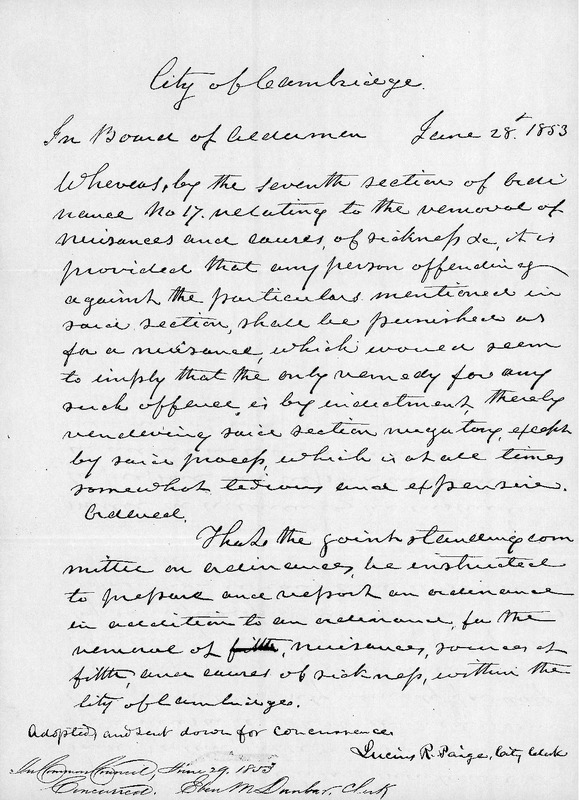 City of Cambridge.
In Board of Aldermen June 28. 1853
Whereas, by the seventh section of Ordi
nance No 17. relating to the removal of
nuisances and causes, of sickness &c, it is
provided that any person offending
against the particulars mentioned in
said section, shall be punished as
for a nuisance, which would seem
to imply that the only remedy for any
such offence, is by indictment, thereby
rendering said section nugatory, except
by said process, which is at all times
somewhat tedious and expensive.
Ordered.
That the joint standing com
mittee on ordinances, be instructed
to prepare and report an ordinance
in addition to an ordinance, for the
removal of filth, nuisances, sources of
filth, and causes of sickness, within the
City of Cambridge.
Adopted, and sent down for concurrence
Lucius R. Paige, City Clerk
In Common Council, June 29. 1853
Concurred. Eben M. Dunbar, Clerk